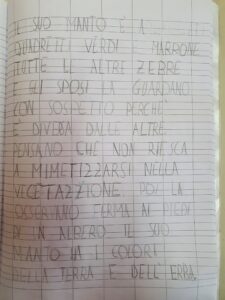 IL SUO MANTO È A
QUADRETTI VERDI E MARRONE
TUTTE LE ALTRE ZEBRE
E GLI SPOSI LA GUARDANO
CON SOSPETTO PERCHÉ
È DIVERSA DALLE ALTRE
PENSANO CHE NON RIESCA
A MIMETIZZARSI NELLA
VEGETAZZIONE. POI LA
OSSERVANO FERMA AI PIEDI
DI UN ALBERO IL SUO
MANTO HA I COLORI
DELLA TERRA E DELL'ERBA